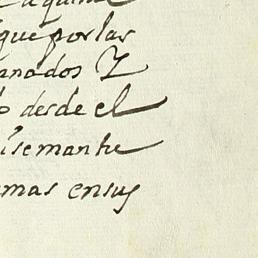 que por las
anados Y
desde el
se mantie
mas en sus